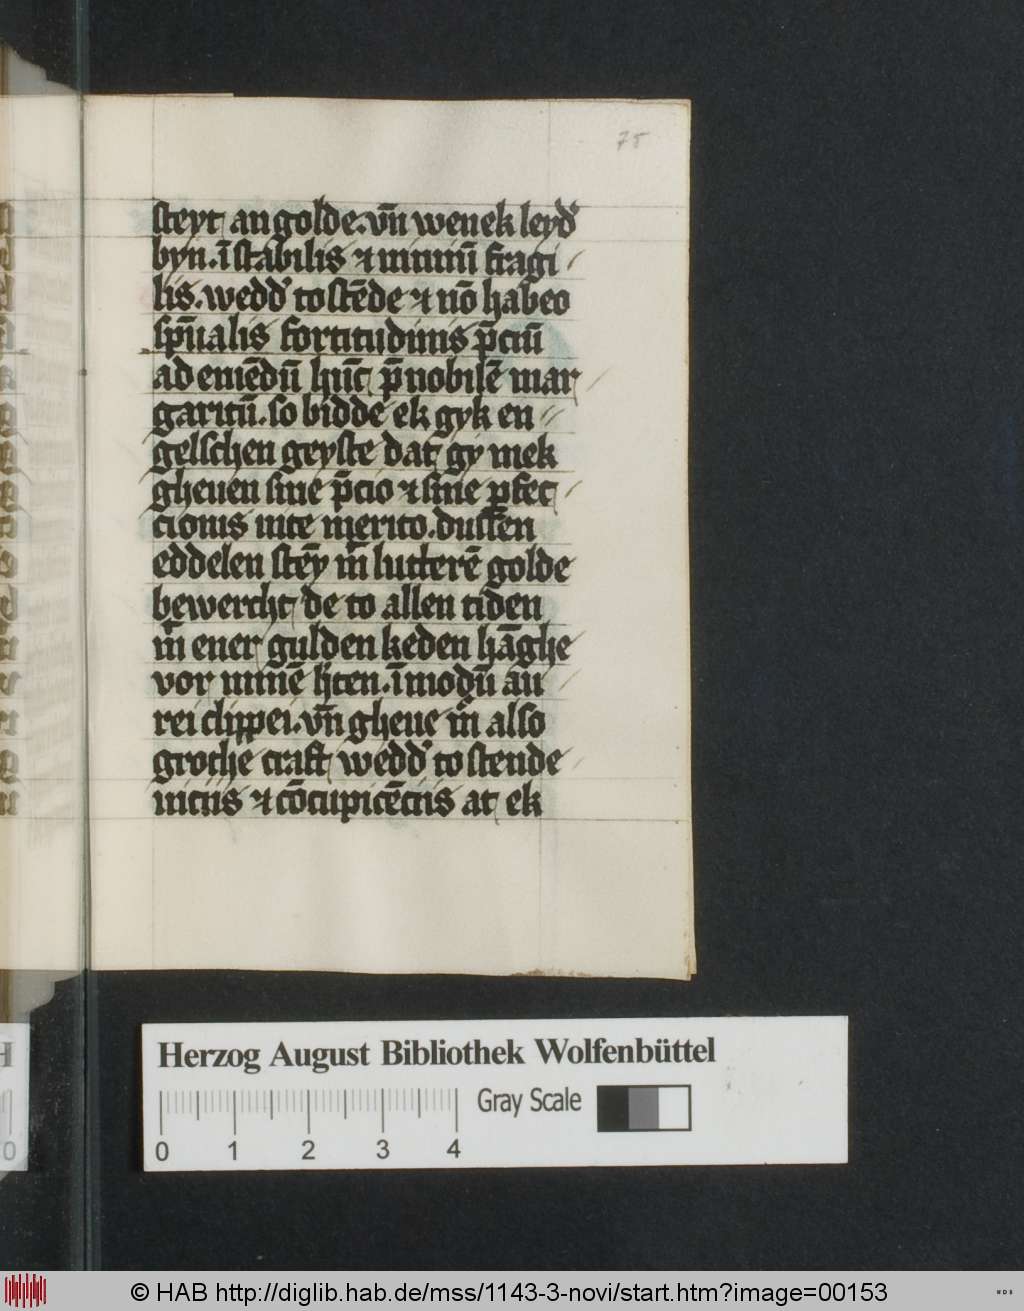 75
steyt an golde. vn̄ wenek leyd'
byn. ī stabilis ⁊ nimiū fragi
lis. wedd' to stēde ⁊ nō habeo
sp̄ualis fortitudinis p̄ciū
ad emēdū hūc p̄nobilē mar
garitū. so bidde ek gyk en
gelschen geyste dat gy mek
gheuen sine p̄cio ⁊ sine perfec
cionis uite merito. dussen
eddelen stēy m̄ lutterē golde
bewercht de to allen tiden
m̄ ener gulden keden hāghe
vor minē h̄ten. ī modū au
rei clippei. vn̄ gheue m̄ also
grothe craft wedd' to stende
uiciis ⁊ cōcupicēciis at ek
Herzog August Bibliothek Wolfenbüttel
Gray Scale
0 1 2 3 4
© HAB http://diglib.hab.de/mss/1143-3-novi/start.htm?image=00153